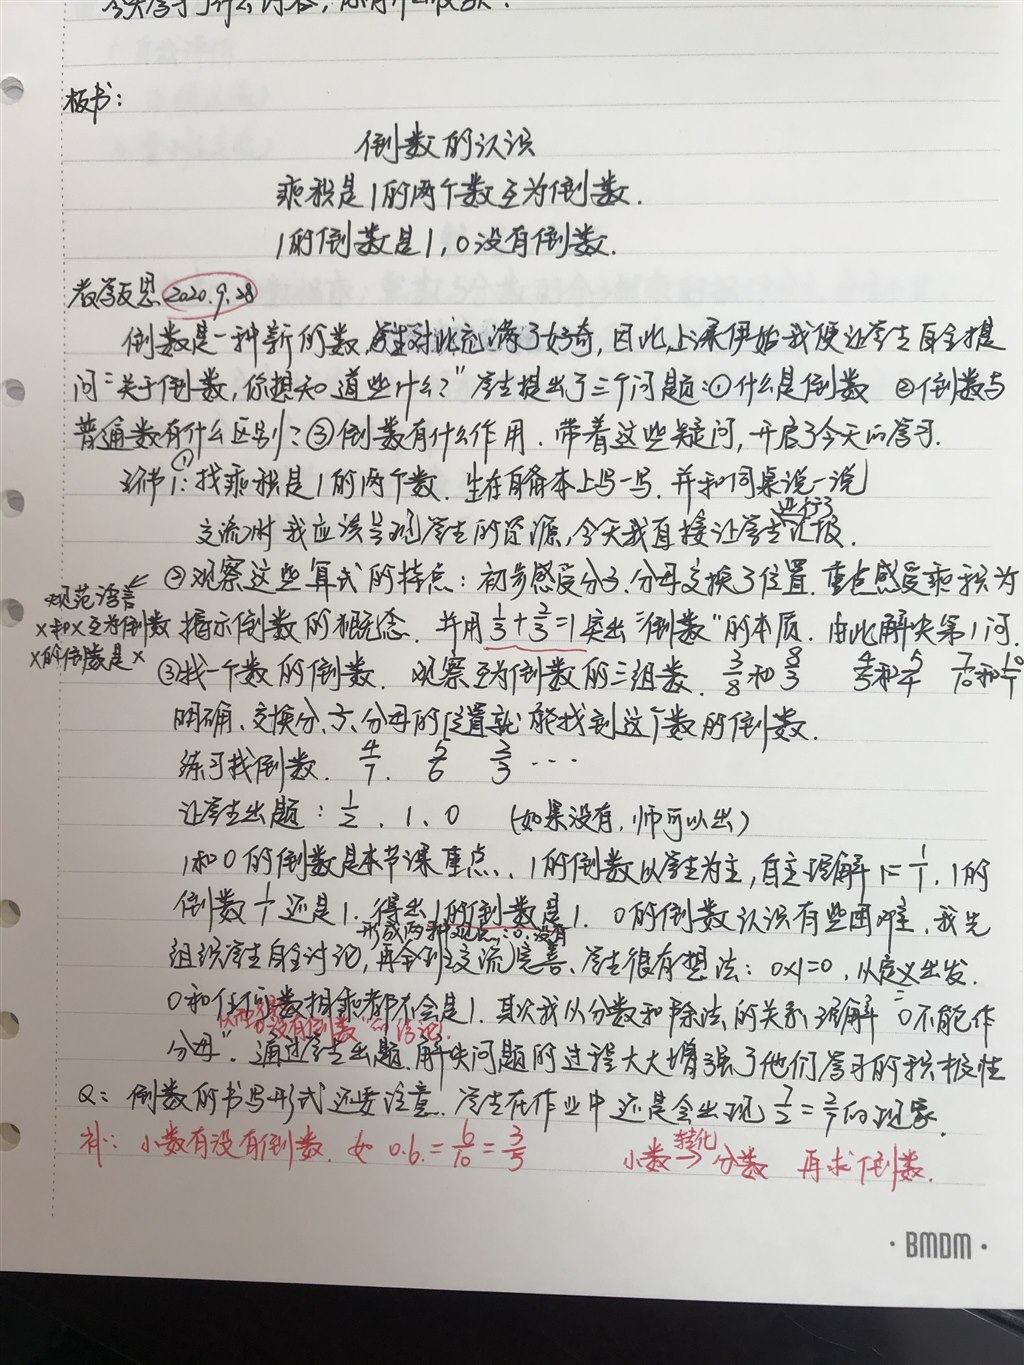 今天学习了什么内容，你有什么收获？
板书：
倒数的认识
乘积是1的两个数互为倒数.
1的倒数是1，0没有倒数.
教学反思 2020.9.28
倒数是一种新的数，学生对此充满了好奇，因此，上课伊始我便让学生自主提
问“关于倒数，你想知道些什么？”学生提出了三个问题：①什么是倒数 ②倒数与
普通数有什么区别？③倒数有什么作用. 带着这些疑问，开启了今天的学习.
环节1：①找乘积是1的两个数. 生在自备本上写一写. 并和同桌说一说
交流时我应该呈现学生的资源，今天我直接让学生进行了汇报.
②观察这些算式的特点：初步感受分子、分母交换了位置. 重点感受乘积为
规范语言
X和X互为倒数
X的倒数是X
揭示倒数的概念. 并用1/3+2/3=1突出“倒数”的本质. 由此解决第1问.
③找一个数的倒数. 观察互为倒数的三组数. 3/8和8/3 4/5和5/4 7/10和10/7
明确、交换分子、分母的位置就能找到这个数的倒数.
练习找倒数. 4/7. 5/6 2/3 ...
让学生出题：1/2、1、0 (如果没有，师可以出)
1和0的倒数是本节课重点、1的倒数以学生为主，自主理解1=1/1. 1的
倒数1/1还是1. 得出1的倒数是1. 0的倒数认识有些困难，我先
形成两种观点：0、没有
组织学生自主讨论，再全班交流完善、学生很有想法：0×1=0，从定义出发.
0和任何数相乘都不会是1. 其次我从分数和除法的关系理解“0不能作
没有倒数”的结论.
分母”. 通过学生出题、解决问题的过程大大增强了他们学习的积极性
Q：倒数的书写形式还要注意. 学生在作业中还是会出现7/2=2/7的现象.
补：小数有没有倒数. 如 0.6=6/10=3/5 小数 转化→ 分数 再求倒数.
·BMDM·